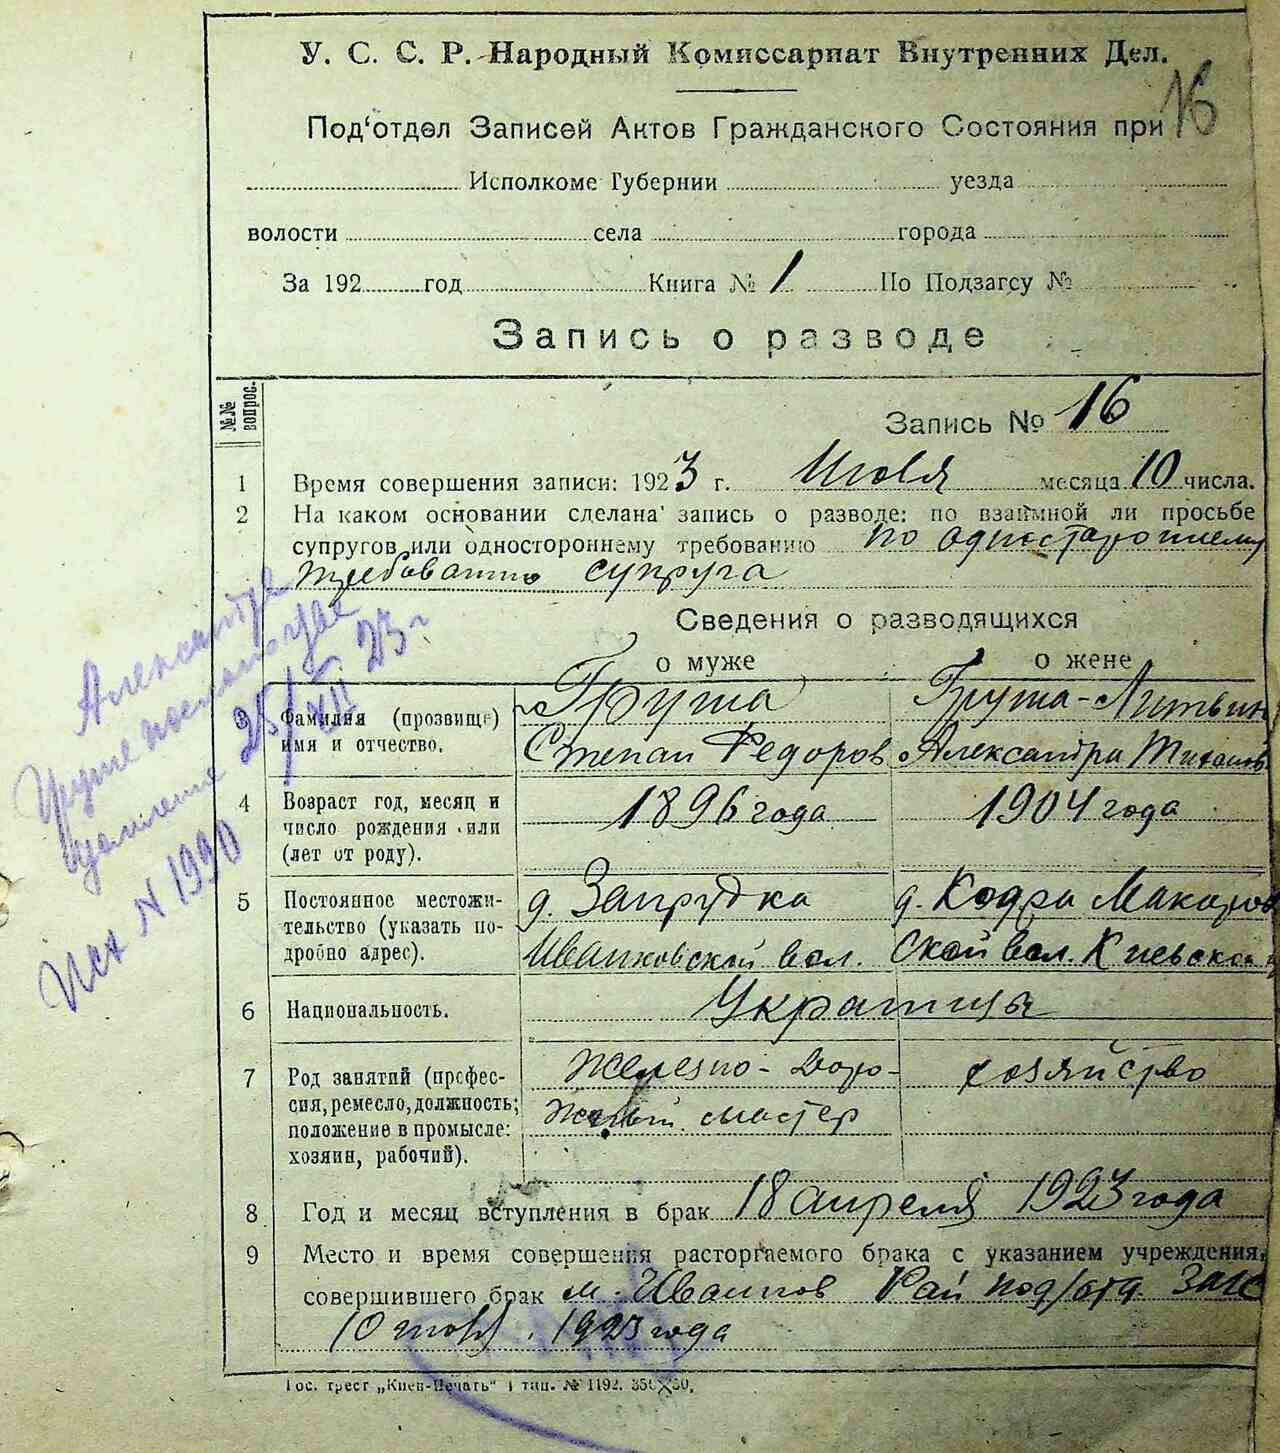 У. С. С. Р. Народный Комиссариат Внутренних Дел.
16
Под'отдел Записей Актов Гражданского Состояния при
Исполкоме Губернии уезда
волости села города
За 192 год Книга № 1 По Подзагсу №
Запись о разводе
№№ вопрос.
Запись № 16
1 Время совершения записи: 1923 г. Июля месяца 10 числа.
2 На каком основании сделана запись о разводе: по взаимной ли просьбе
супругов или одностороннему требованию по одностароннему
требованию супруга
Сведения о разводящихся
о муже о жене
3 Фамилия (прозвище) имя и отчество.
Груша
Степан Федоров
Груша-Литвин
Александра
4 Возраст год, месяц и число рождения или (лет от роду).
1896 года
1904 года
5 Постоянное местожительство (указать подробно адрес).
д. Запрудка
Иванковской вол.
д. Кодра Макаров
ской вол. Киевской
6 Национальность.
Украинцы
7 Род занятий (профессия, ремесло, должность; положение в промысле: хозяин, рабочий).
Железно-доро-
жный мастер
хозяйство
8 Год и месяц вступления в брак 18 апреля 1923 года
9 Место и время совершения расторгаемого брака с указанием учреждения,
совершившего брак м. Иванков Рай под/отд. Загс
10 июля 1923 года
Гос. трест „Киев-Печать“ 1 тип. № 1192.
Александре
Груше послано
25/XII 23 г
Исх N 1990